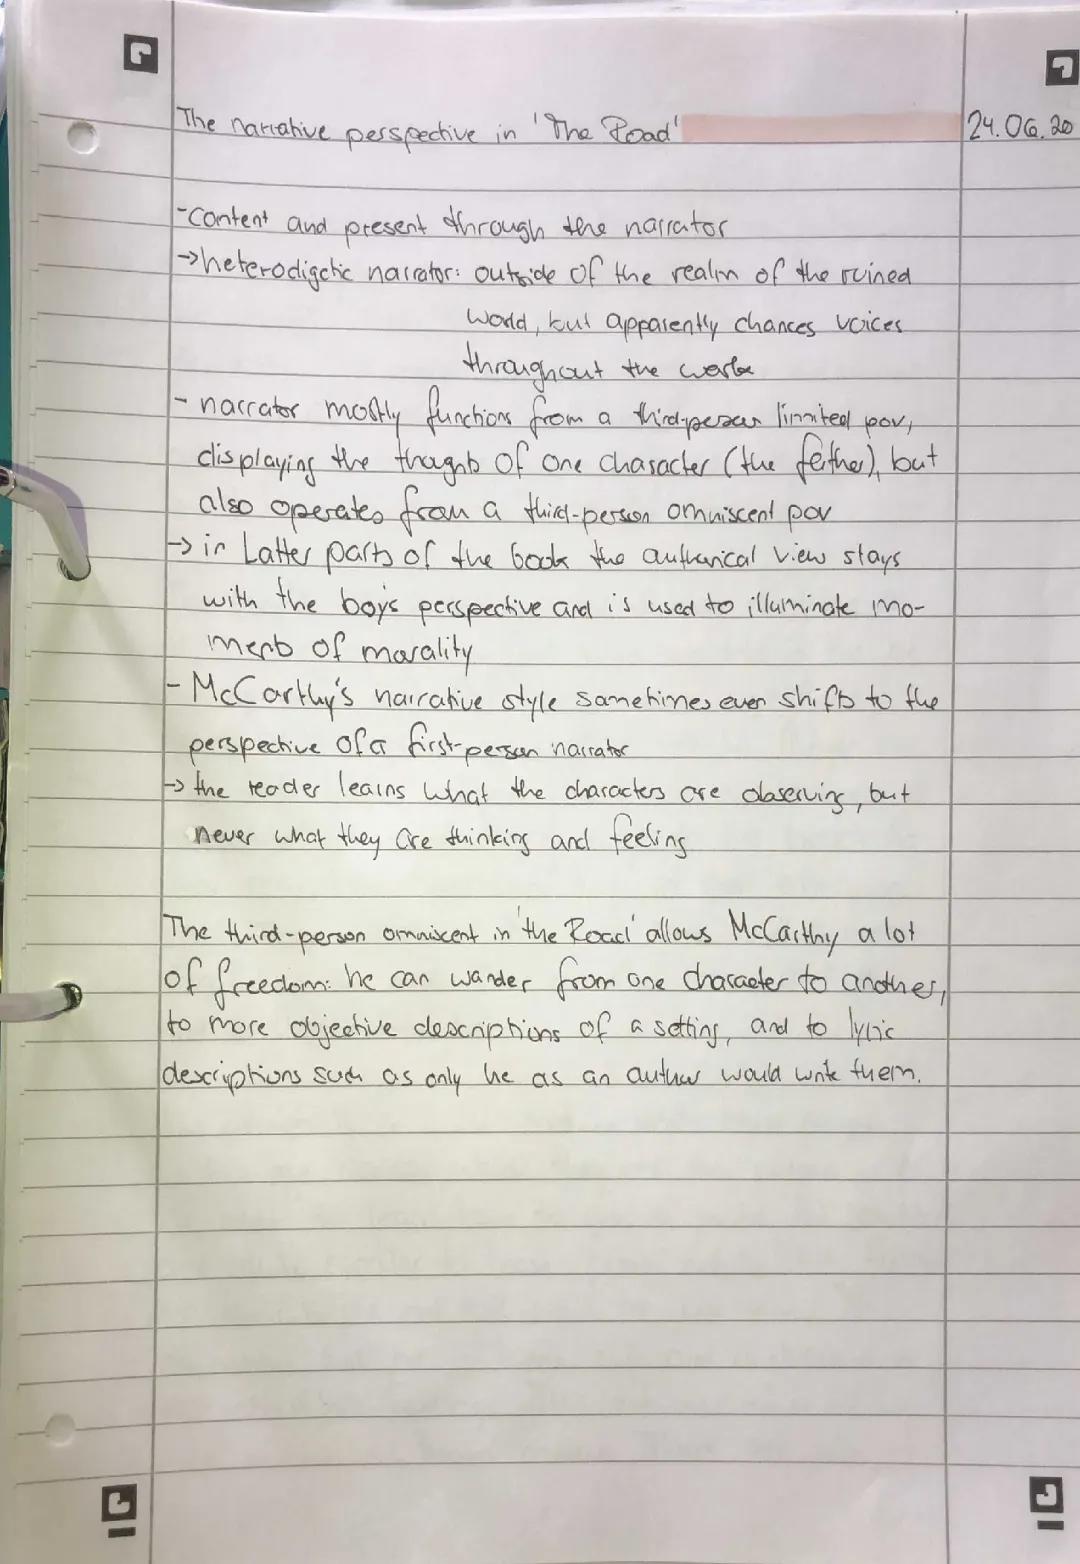 The narrative perspective in 'The Road' 24.06.20
-content and present through the narrator
→heterodigetic narrator: outside of the realm of the ruined
world, but apparently chances voices
throughout the
- narrator mostly functions from a third-person limited pov,
displaying the thoughts of one character (the father), but
also operates from a third-person omniscent pov
→ in Latter parts of the book the authorical view stays
with the boy's perspective and is used to illuminate mo-
ments of morality
- McCarthy's narrative style sometimes even shifts to the
perspective of a first-person narrator
→ the reader learns what the characters are observing, but
never what they are thinking and feeling
The third-person omniscent in 'the Road' allows McCarthy a lot
of freedom: he can wander from one character to another,
to more objective descriptions of a setting, and to lyric
descriptions such as only he as an author would write them.